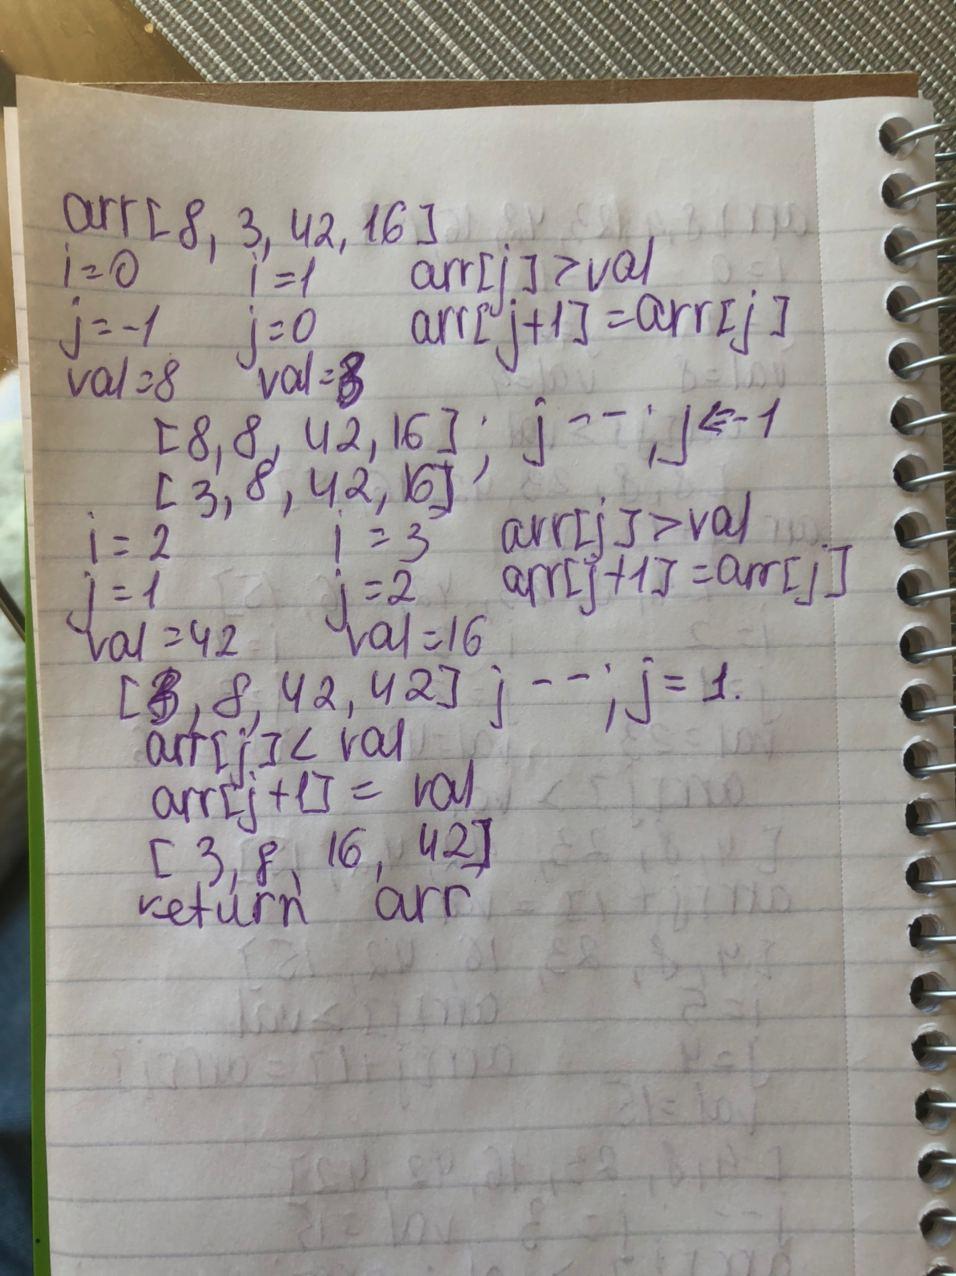 arr[8, 3, 42, 16]
i=0 i=1 arr[j]>val
j=-1 j=0 arr[j+1]=arr[j]
val=8 val=3
[8, 8, 42, 16]; j--; j<=-1
[3, 8, 42, 16]
i=2 i=3 arr[j]>val
j=1 j=2 arr[j+1]=arr[j]
val=42 val=16
[3, 8, 42, 42] j--; j=1.
arr[j]< val
arr[j+1]= val
[3, 8, 16, 42]
return arr